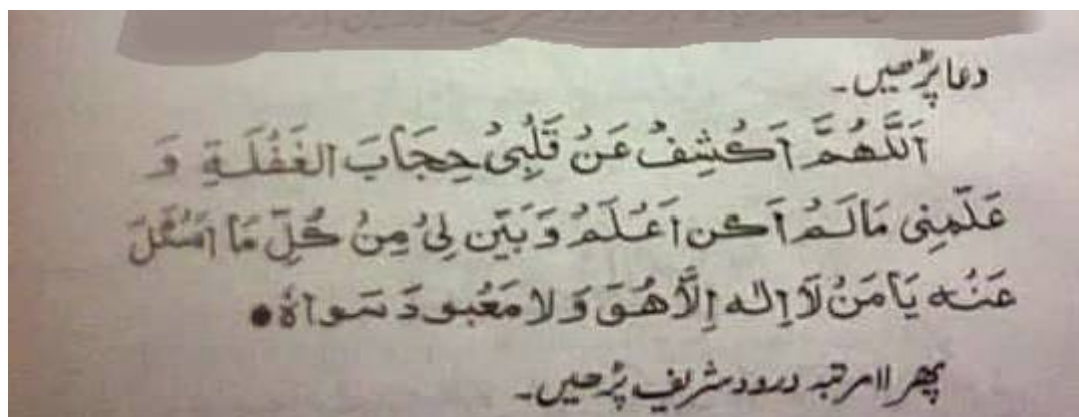 دعا پڑھیں۔
اَللّٰهُمَّ اَكْشِفْ عَنْ قَلْبِیْ حِجَابَ الْغَفْلَةِ وَ
عَلِّمْنِی مَالَمْ اَكن اَعْلَمُ وَبَیِّن لِیْ مِنْ كُلِّ مَا اَسْئَلُ
عَنْه یَا مَنْ لَا اِلٰه اِلَّا هُوَ وَلَا مَعْبودَ سَواهُ
پھر ۱۱ مرتبہ درود شریف پڑھیں۔